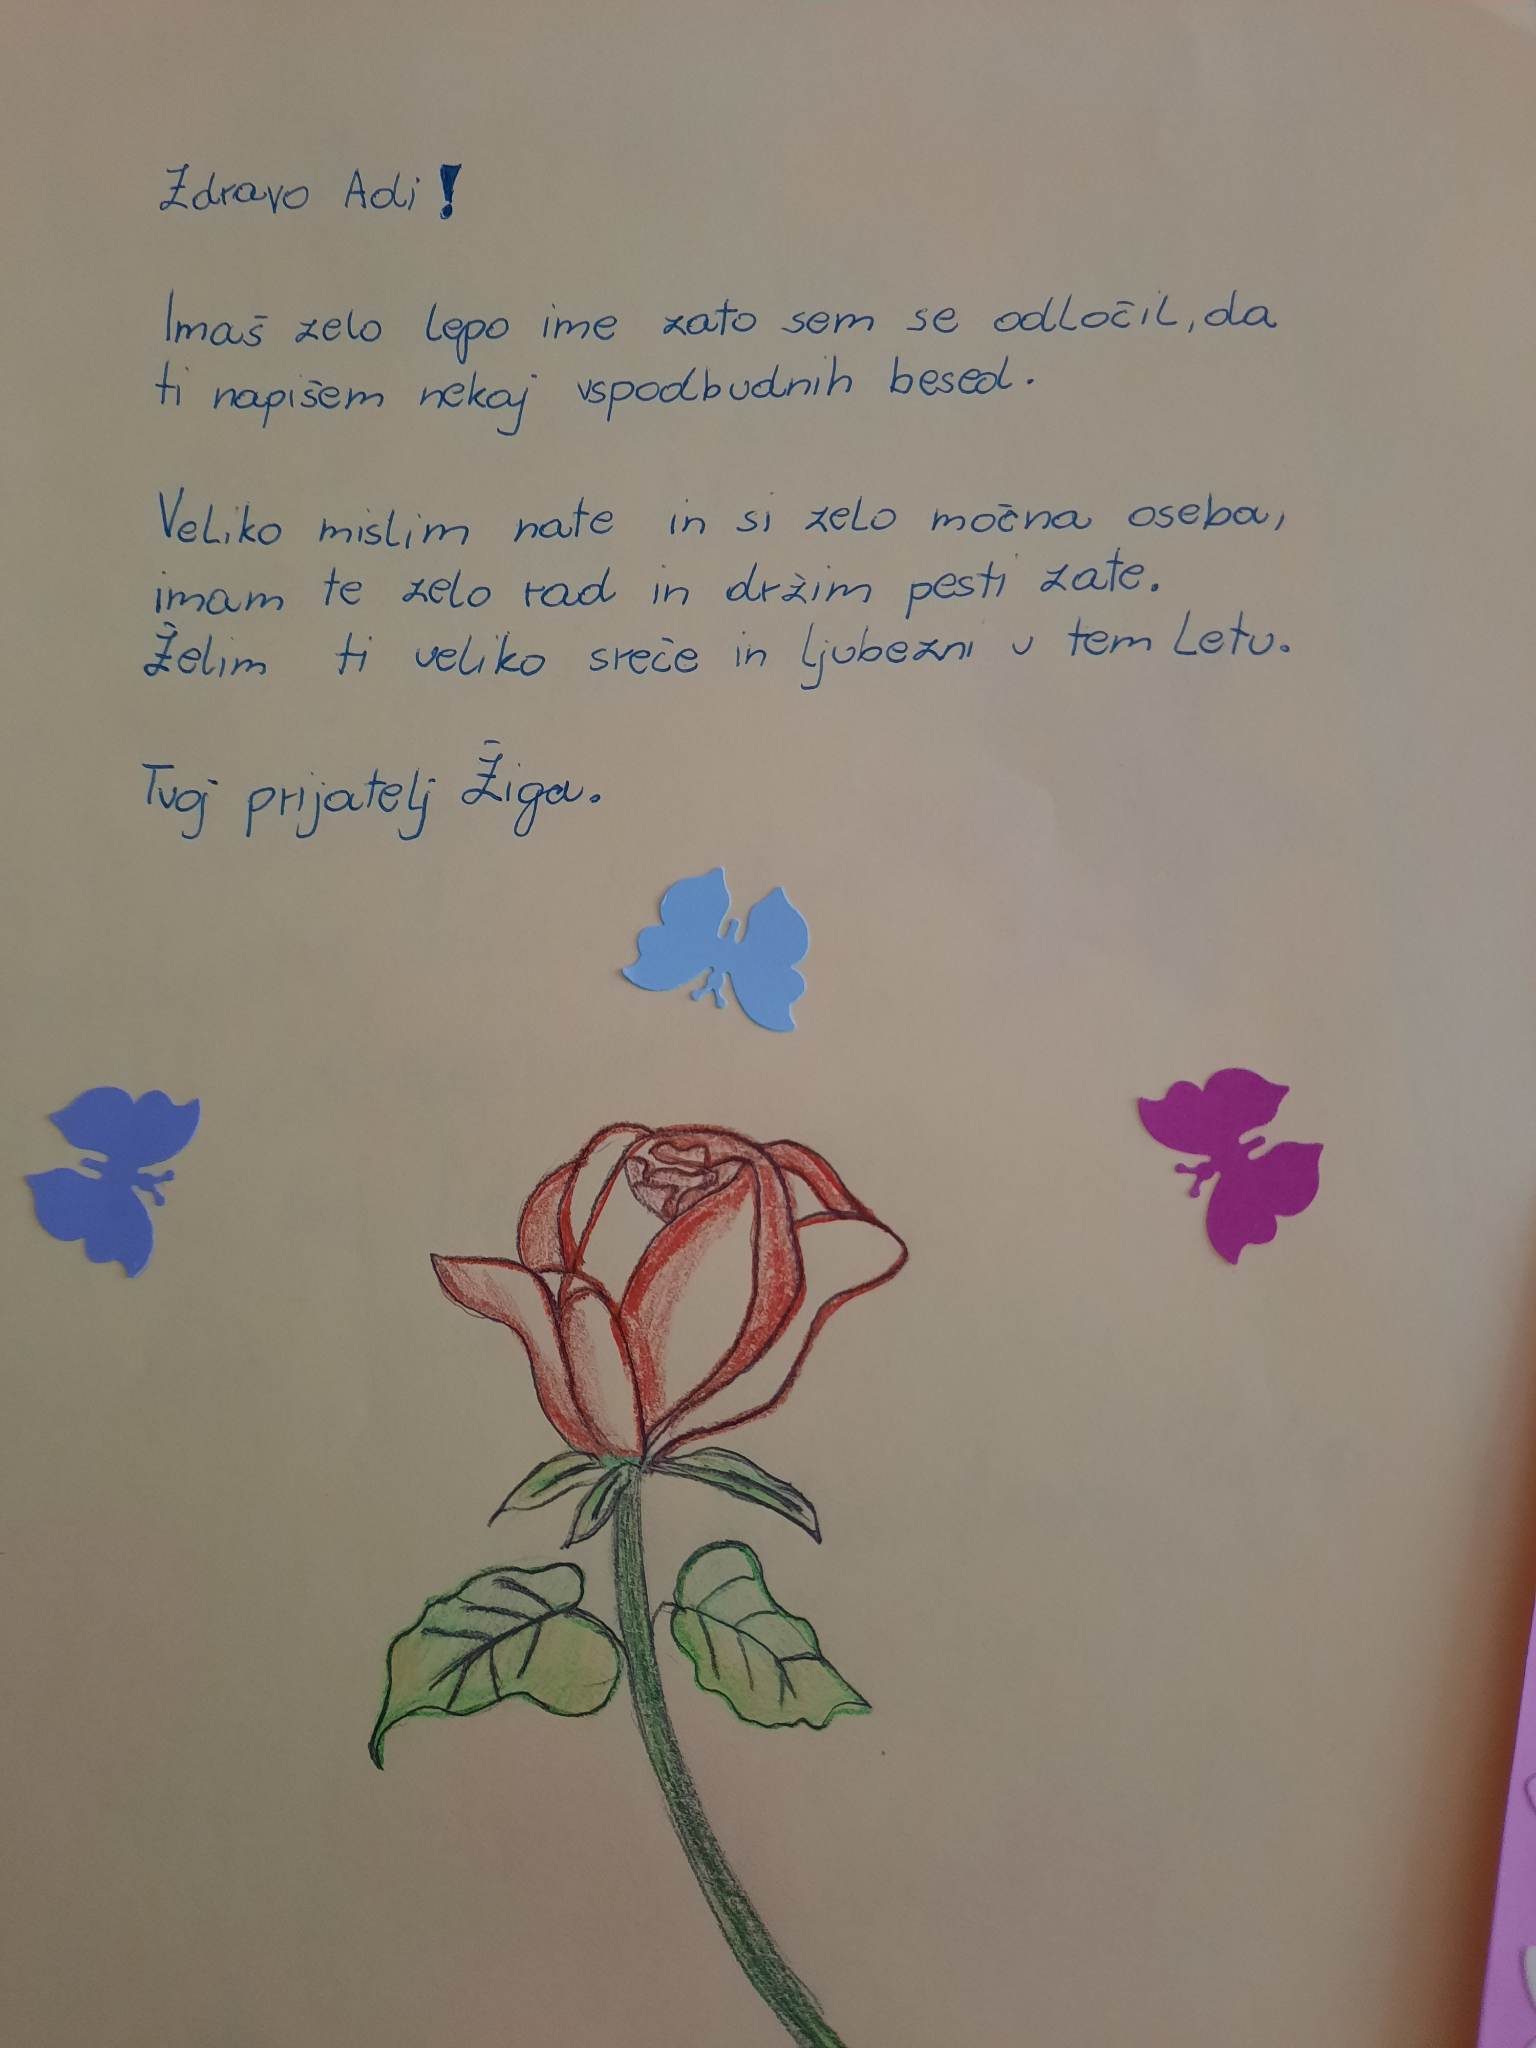 Zdravo Adi!
Imaš zelo lepo ime zato sem se odločil, da
ti napišem nekaj vspodbudnih besed.
Veliko mislim nate in si zelo močna oseba,
imam te zelo rad in držim pesti zate.
Želim ti veliko sreče in ljubezni v tem Letu.
Tvoj prijatelj Žiga.